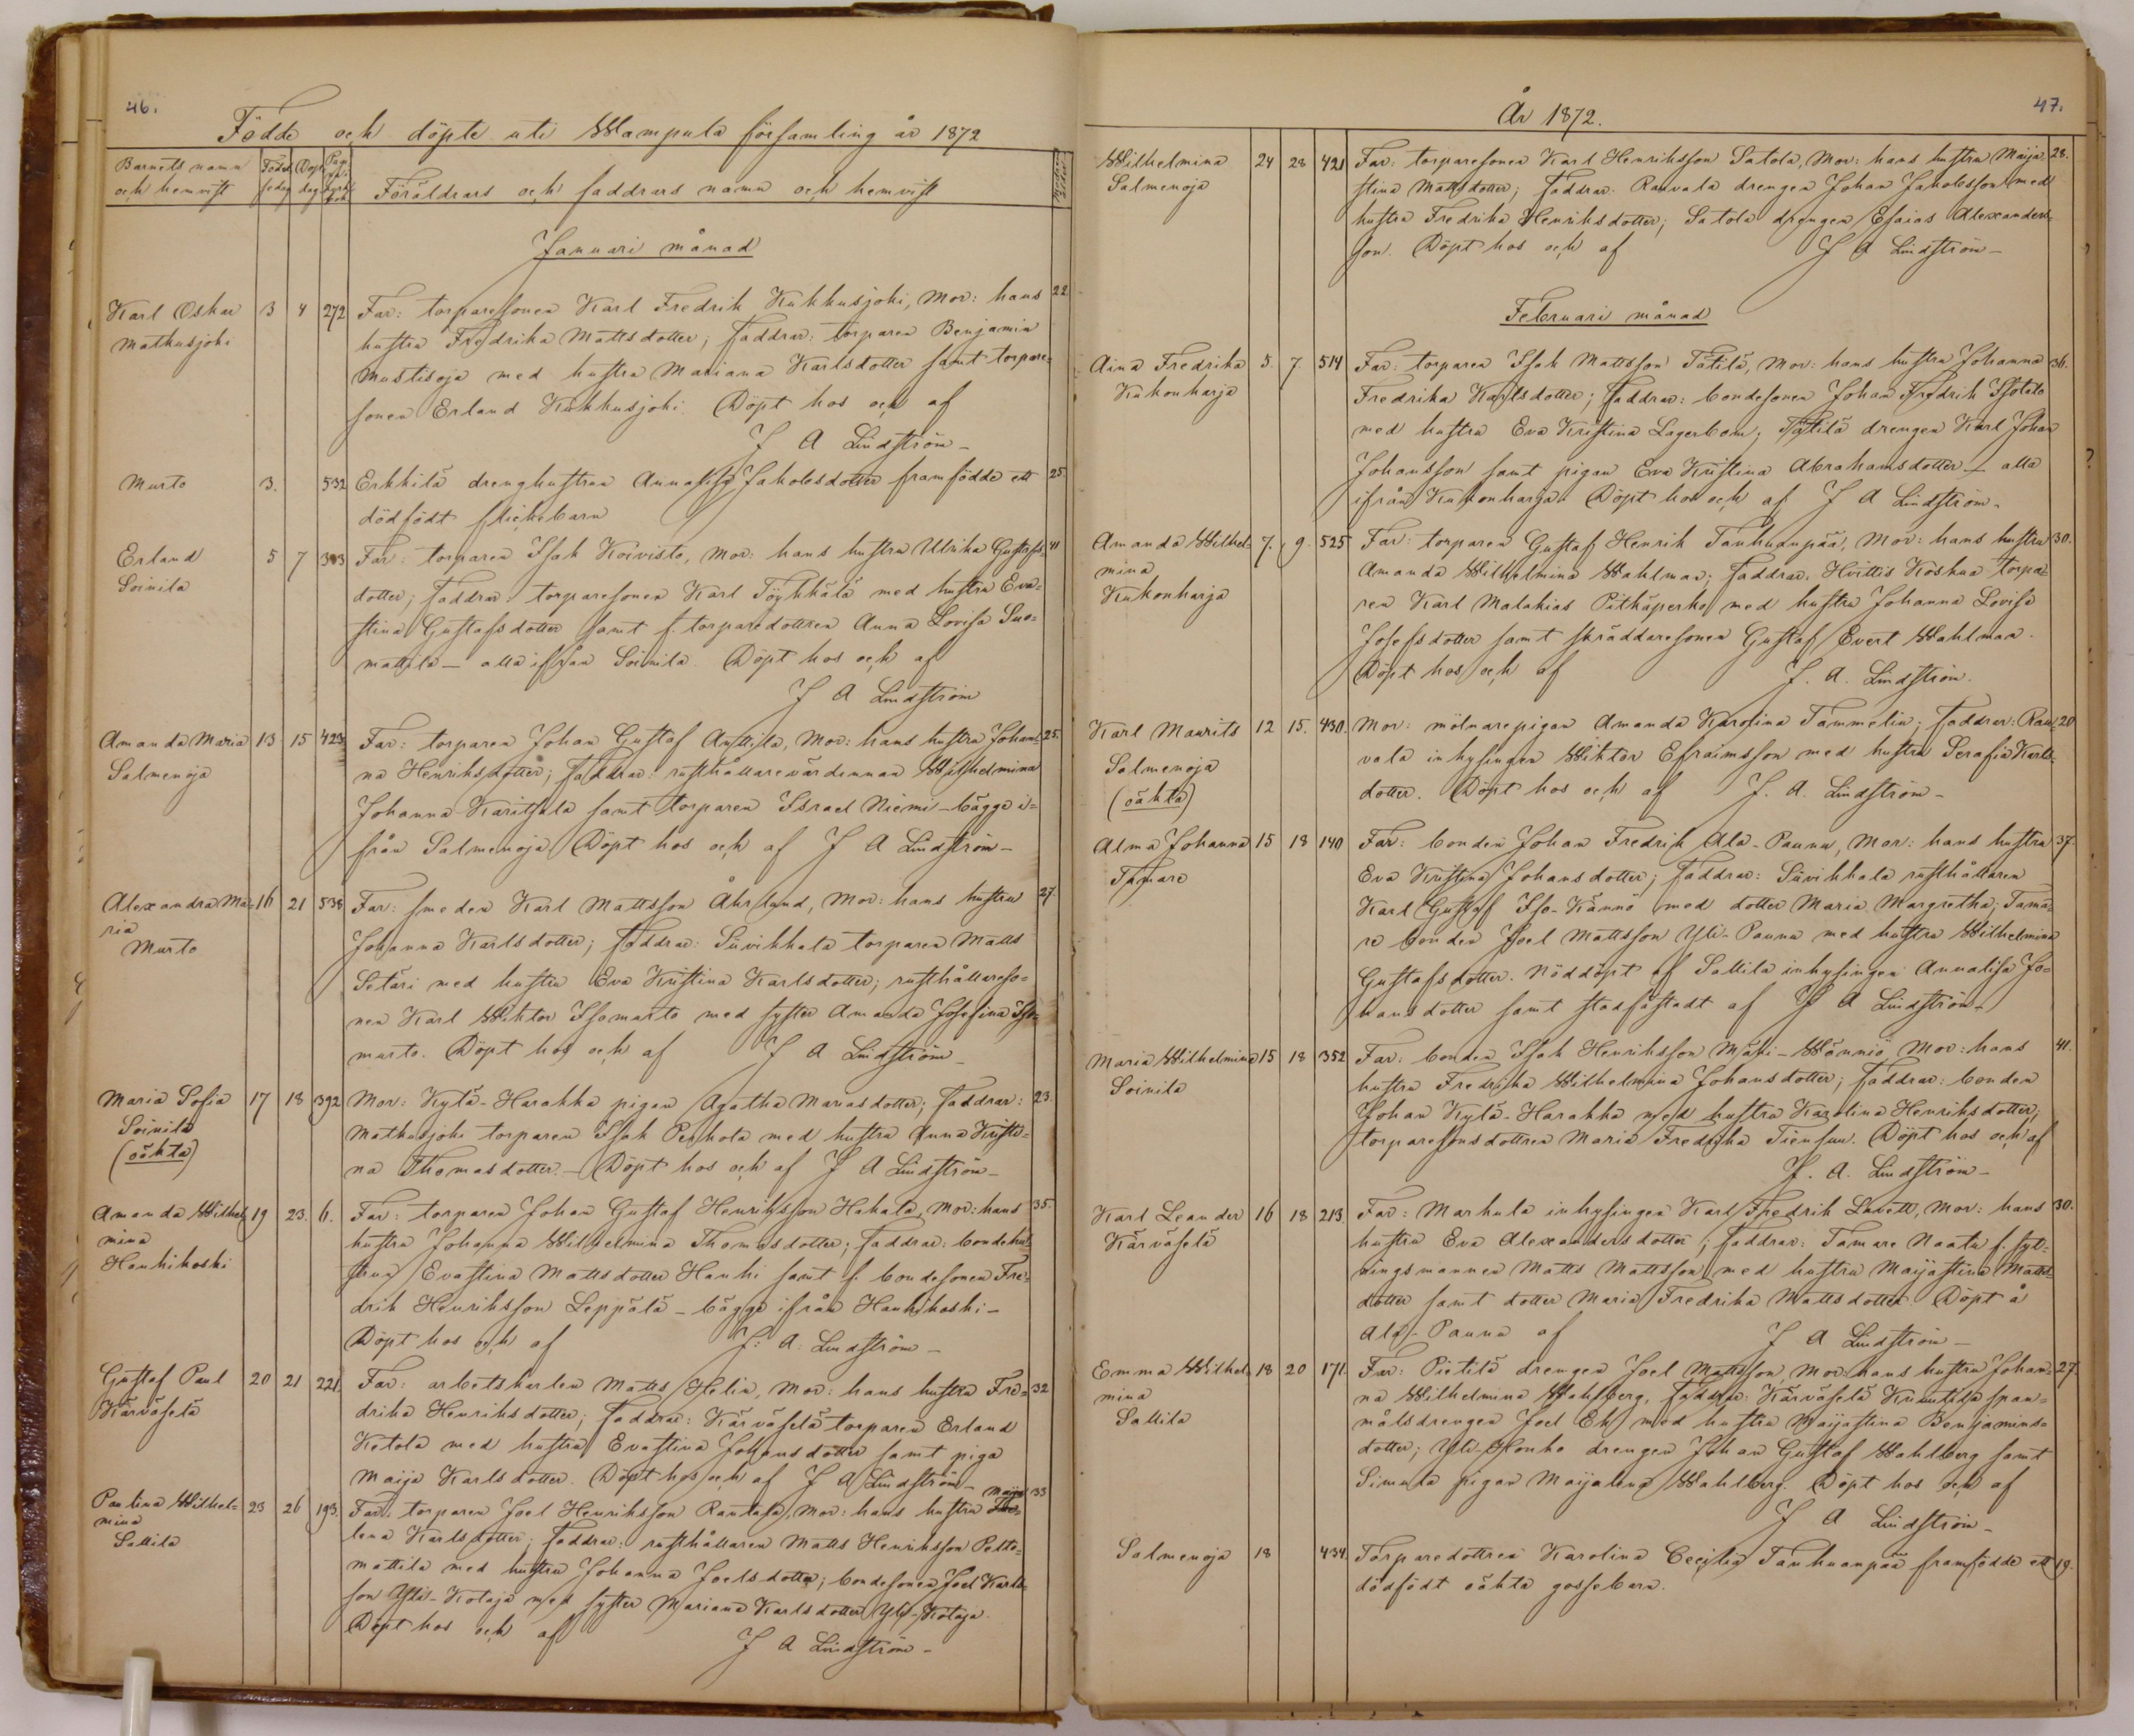 46.
Födde och döpte uti Wampula församling år 1872
Barnets namn
och hemvist
Född.
sedag
Dop
dag
Föräldrars och faddrars namn och hemvist
Januari månad
Karl Oskar 3 4 272 Far: torparesonen Karl Fredrik Kukkusjoki, Mor: hans 22
Matkusjoki
hustru Fredrika Mattsdotter; faddrar: torparen Benjamin
Mustisoja med hustru Mariana Karlsdotter samt torpare=
sonen Erland Kukkusjoki. Döpt hos och af
J A Lindström –
Murto 3. 532 Erkkilä drenghustrun Annalisa Jakobsdotter framfödde ett 25.
dödfödt flickebarn
Erland 5 7 Far: torparen Isak Koivisto, Mor: hans hustru Ulrika Gustafs= 41
Soinila
dotter; faddrar: torparesonen Karl Töykkälä med hustru Eva=
stina Gustafsdotter samt f. torparedottren Anna Lovisa Suo=
mattila – alla ifrån Soinila. Döpt hos och af
J A Lindström
Amanda Maria 13 15 423 Far: torparen Johan Gustaf Anttila, Mor: hans hustru Johan= 25.
Salmenoja
na Henriksdotter; faddrar: rusthållarevärdinnan Wilhelmina
Johanna Karitsala samt torparen Israel Niemi – bägge i=
från Salmenoja. Döpt hos och af J A Lindström –
Alexandra Ma= 16 21 538 Far: smeden Karl Mattsson Åhrlund, Mor: hans hustru 27.
ria
Murto
Johanna Karlsdotter; faddrar: Sävikkala torparen Matts
Setäri med hustru Eva Kristina Karlsdotter; rusthållareso=
nen Karl Wiktor Isomurto med syster Amanda Josefina Iso=
murto. Döpt hos och af J A Lindström –
Maria Sofia 17 18 392 Mor: Kylä-Harakka pigan Agatha Mariasdotter; faddrar: 23.
Soinila
(oäkta)
Matkusjoki torparen Isak Penkola med hustru Anna Kristi=
na Thomasdotter. – Döpt hos och af J A Lindström –
Amanda Wilhel= 19 23. 6. Far: torparen Johan Gustaf Henriksson Hakala, Mor: hans 35.
mina
Hankikoski
hustru Johanna Wilhelmina Thomasdotter; faddrar: bondehu=
strun Evastina Mattsdotter Hanhi samt f. bondesonen Fre=
drik Henriksson Leppälä – bägge ifrån Hanhikoski –
Döpt hos och af J. A. Lindström –
Gustaf Paul 20 21 221. Far: arbetskarlen Matts Helin, Mor: hans hustru Fre= 32
Kärväselä
drika Henriksdotter; faddrar: Kärväselä torparen Erland
Ketola med hustru Evastina Johansdotter samt piga
Maija Karlsdotter. Döpt hos och af J A Lindström –
Paulina Wilhel= 23 26 193. Far: torparen Joel Henriksson Rantala, Mor: hans hustru Maija 33
mina
Sallila
lena Karlsdotter; faddrar: rusthållaren Matts Henriksson Pelto=
mattila med hustru Johanna Joelsdotter; bondesonen Joel Karls=
son Yli-Kotaja med syster Mariana Karlsdotter Yli-Kotaja.
Döpt hos och af
J A Lindström –
År 1872.
47.
Wilhelmina 24 28 421 Far: torparesonen Karl Henriksson Satola, Mor: hans hustru Maija= 28.
Salmenoja
stina Mattsdotter; faddrar: Rauvala drengen Johan Jakobsson med
hustru Fredrika Henriksdotter; Satola drengen Esaias Alexanders=
son. Döpt hos och af J A Lindström –
Februari månad
Aina Fredrika 5. 7. 514 Far: torparen Isak Mattsson Tätilä, Mor: hans hustru Johanna 36.
Kukonharja
Fredrika Karlsdotter; faddrar: bondesonen Johan Fredrik Isotalo
med hustru Eva Kristina Lagerbom; Tätilä drengen Karl Johan
Johansson samt pigan Eva Kristina Abrahamsdotter – alla
ifrån Kukonharja. Döpt hos och af J A Lindström.
Amanda Wilhel= 7. 9. 525 Far: torparen Gustaf Henrik Tauhuanpää, Mor: hans hustru 30.
mina
Kukonharja
Amanda Wilhelmina Wahlman; faddrar: Hvittis Koskua torpa=
ren Karl Malakias Pitkäperko med hustru Johanna Lovisa
Josefsdotter samt skräddaresonen Gustaf Evert Wahlman.
Döpt hos och af J. A. Lindström.
Karl Maurits 12 15. 430. Mor: mölnarepigan Amanda Karolina Tammelin; faddrar: Rau= 20
Salmenoja
(oäkta)
vala inhysingen Wiktor Efraimsson med hustru Serafia Karls=
dotter. Döpt hos och af J. A. Lindström –
Alma Johanna 15 18 140 Far: bonden Johan Fredrik Ala-Pannu, Mor: hans hustru 37.
Tamare
Eva Kristina Johansdotter; faddrar: Sävikkala rusthållaren
Karl Gustaf Iso-Kännö med dotter Maria Margretha; Tama=
re bonden Joel Mattsson Yli-Pannu med hustru Wilhelmina
Gustafsdotter. Nöddöpt af Sallila inhysingen Annalisa Jo=
hansdotter samt stadfästadt af J A Lindström –
Maria Wilhelmina 15 18 352 Far: bonden Isak Henriksson Mäki-Wänniö, Mor: hans 41.
Soinila
hustru Fredrika Wilhelmina Johansdotter; faddrar: bonden
Johan Kylä-Harakka med hustru Karolina Henriksdotter;
torparesonsdottren Maria Fredrika Tiensuu. Döpt hos och af
J. A. Lindström –
Karl Leander 16 18 213. Far: Markula inhysingen Karl Fredrik Lavett, Mor: hans 30.
Kärväselä
hustru Eva Alexandersdotter; faddrar: Tamare Naatu f. syt=
ningsmannen Matts Mattsson med hustru Maijastina Matts=
dotter samt dotter Maria Fredrika Mattsdotter. Döpt å
Ala-Pannu af J A Lindström –
Emma Wilhel= 18 20 171. Far: Pietilä drengen Joel Mattsson, Mor: hans hustru Johan= 27.
mina
Sallila
na Wilhelmina Wahlberg, faddrar: Kärväselä Knuutila span=
målsdrengen Joel Ek med hustru Maijastina Benjamins=
dotter; Yli-Honko drengen Johan Gustaf Wahlberg samt
Simula pigan Maijalena Wahlberg. Döpt hos och af
J A Lindström –
Salmenoja 18 434. Torparedottren Karolina Cecilia Tauhuanpää framfödde ett 19.
dödfödt oäkta gossebarn.